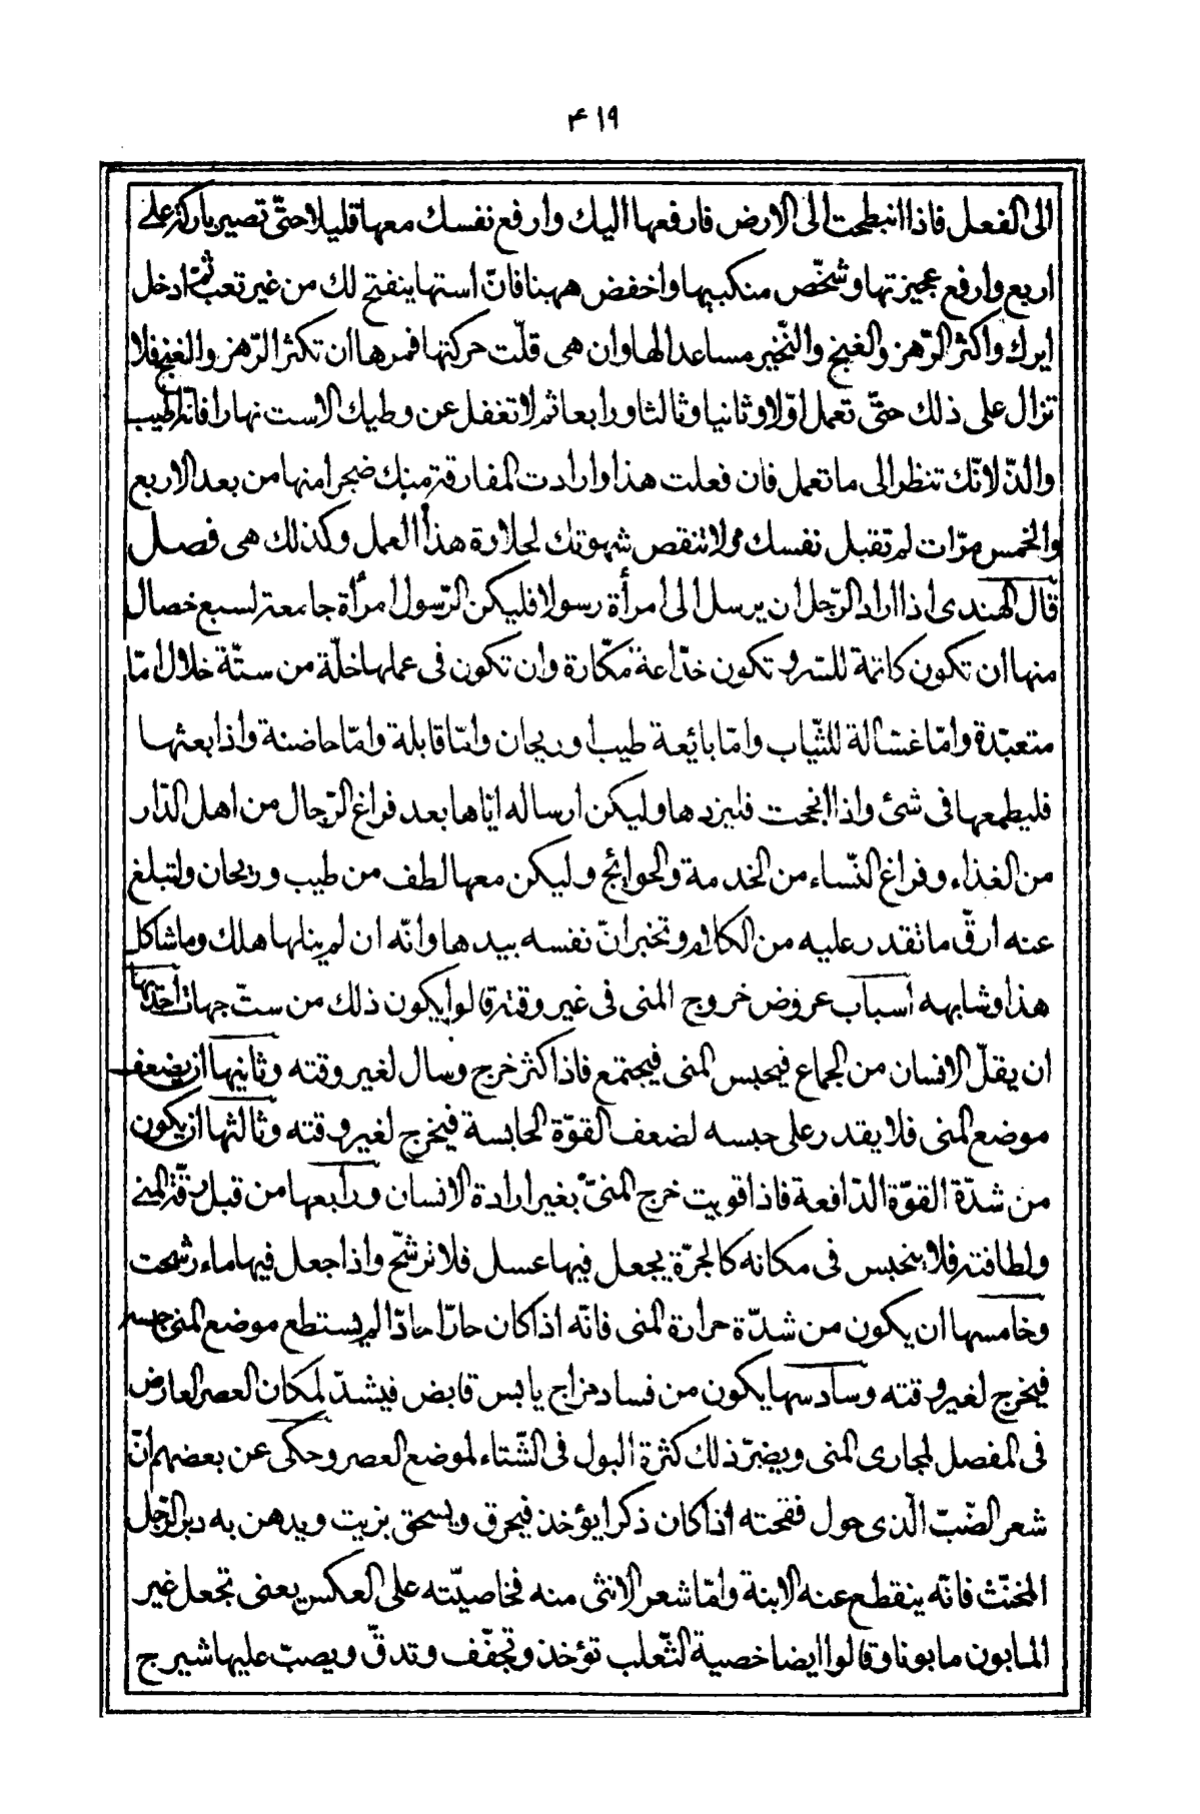 ۴۱۹
الى الفعل فاذا انبطحت الى الارض فارفعها اليك وارفع نفسك معها قليلا حتّى تصير باركة على
اربع وارفع عجيزتها وشخّص منكبيها واخفض ههنا فانّ استها ينفتح لك من غير تعب ثمّ ادخل
ايرك واكثر الرّهز والغنج والنّخير مساعدا لها وان هى قلّت حركتها فمرها ان تكثر الرّهز والغنج فلا
تزال على ذلك حتّى تعمل اوّلا وثانيا وثالثا ورابعا ثم لا تغفل عن وطيك الاست نهارا فانّه اطيب
والذّ لانّك تنظر الى ما تعمل فان فعلت هذا وارادت المفارقة منك ضجرا منها من بعد الاربع
والخمس مرّات لم تقبل نفسك ولا تنقص شهوتك لحلاوة هذا العمل وكذلك هى فصل
قال الهندى اذا اراد الرّجل ان يرسل الى امرأة رسولا فليكن الرّسول امرأة جامعة لسبع خصال
منها ان تكون كاتمة للسّر وتكون خدّاعة مكّارة وان تكون فى عملها خلّة من ستّة خلال امّا
متعبّدة وامّا غسّالة للثّياب وامّا بائعة طيب اوريحان وامّا قابلة وامّا حاضنة واذا بعثها
فليطمعها فى شئ واذا انجحت فليزدها وليكن ارساله ايّاها بعد فراغ الرّجال من اهل الدّار
من الغذاء وفراغ النّساء من الخدمة والحوايج وليكن معها لطف من طيب وريحان ولتبلغ
عنه ارقّ ما تقدر عليه من الكلام وتخبر انّ نفسه بيدها وانّه ان لم ينلها هلك وما شاكل
هذا وشابهه اسباب عروض خروج المنى فى غير وقته قالوا يكون ذلك من ستّ جهات احديها
ان يقلّ الانسان من الجماع فيحبس المنى فيجتمع فاذا كثر خرج وسال لغير وقته وثانيها ان يضعف
موضع المنى فلا يقدر على حبسه لضعف القوّة الحابسة فيخرج لغير وقته وثالثها ان يكون
من شدّة القوّة الدّافعة فاذا قويت خرج المنىّ بغير ارادة الانسان ورابعها من قبل رقّة المنى
ولطافته فلا ينحبس فى مكانه كالجرّة يجعل فيها عسل فلا ترشّح واذا جعل فيها ماء رشحت
وخامسها ان يكون من شدّة حرارة المنى فانّه اذا كان حارّا حادّا لم يستطع موضع المنى حبسه
فيخرج لغير وقته وسادسها يكون من فساد مزاج يابس قابض فيشدّ لمكان العصر العارض
فى المفصل لمجارى المنى ويضرّ ذلك كثرة البول فى الشّتاء لموضع العصر وحكى عن بعضهم انّ
شعر الضّبّ الّذى حول فقحته اذا كان ذكرا يؤخذ فيحرق ويسحق بزيت ويدهن به دبر الرّجل
المخنّث فانّه ينقطع عنه الابنة وامّا شعر الانثى منه فخاصيّته على العكس يعنى تجعل غير
المابون مابونا وقالوا ايضا خصية الثّعلب تؤخذ وتجفّف وتدقّ ويصبّ عليها شيرج